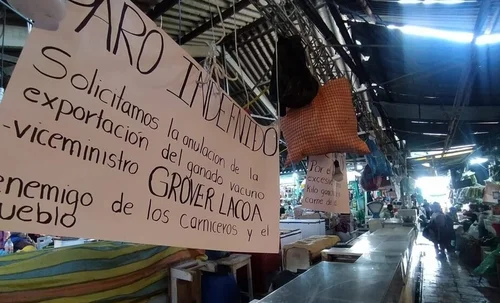 PARO INDEFINIDO
Solicitamos la anulacion de la
exportación del ganado vacuno
-viceministro GROVER LACOA
enemigo de los carniceros y el
ueblo
Por el
exceso
kilo
carne de